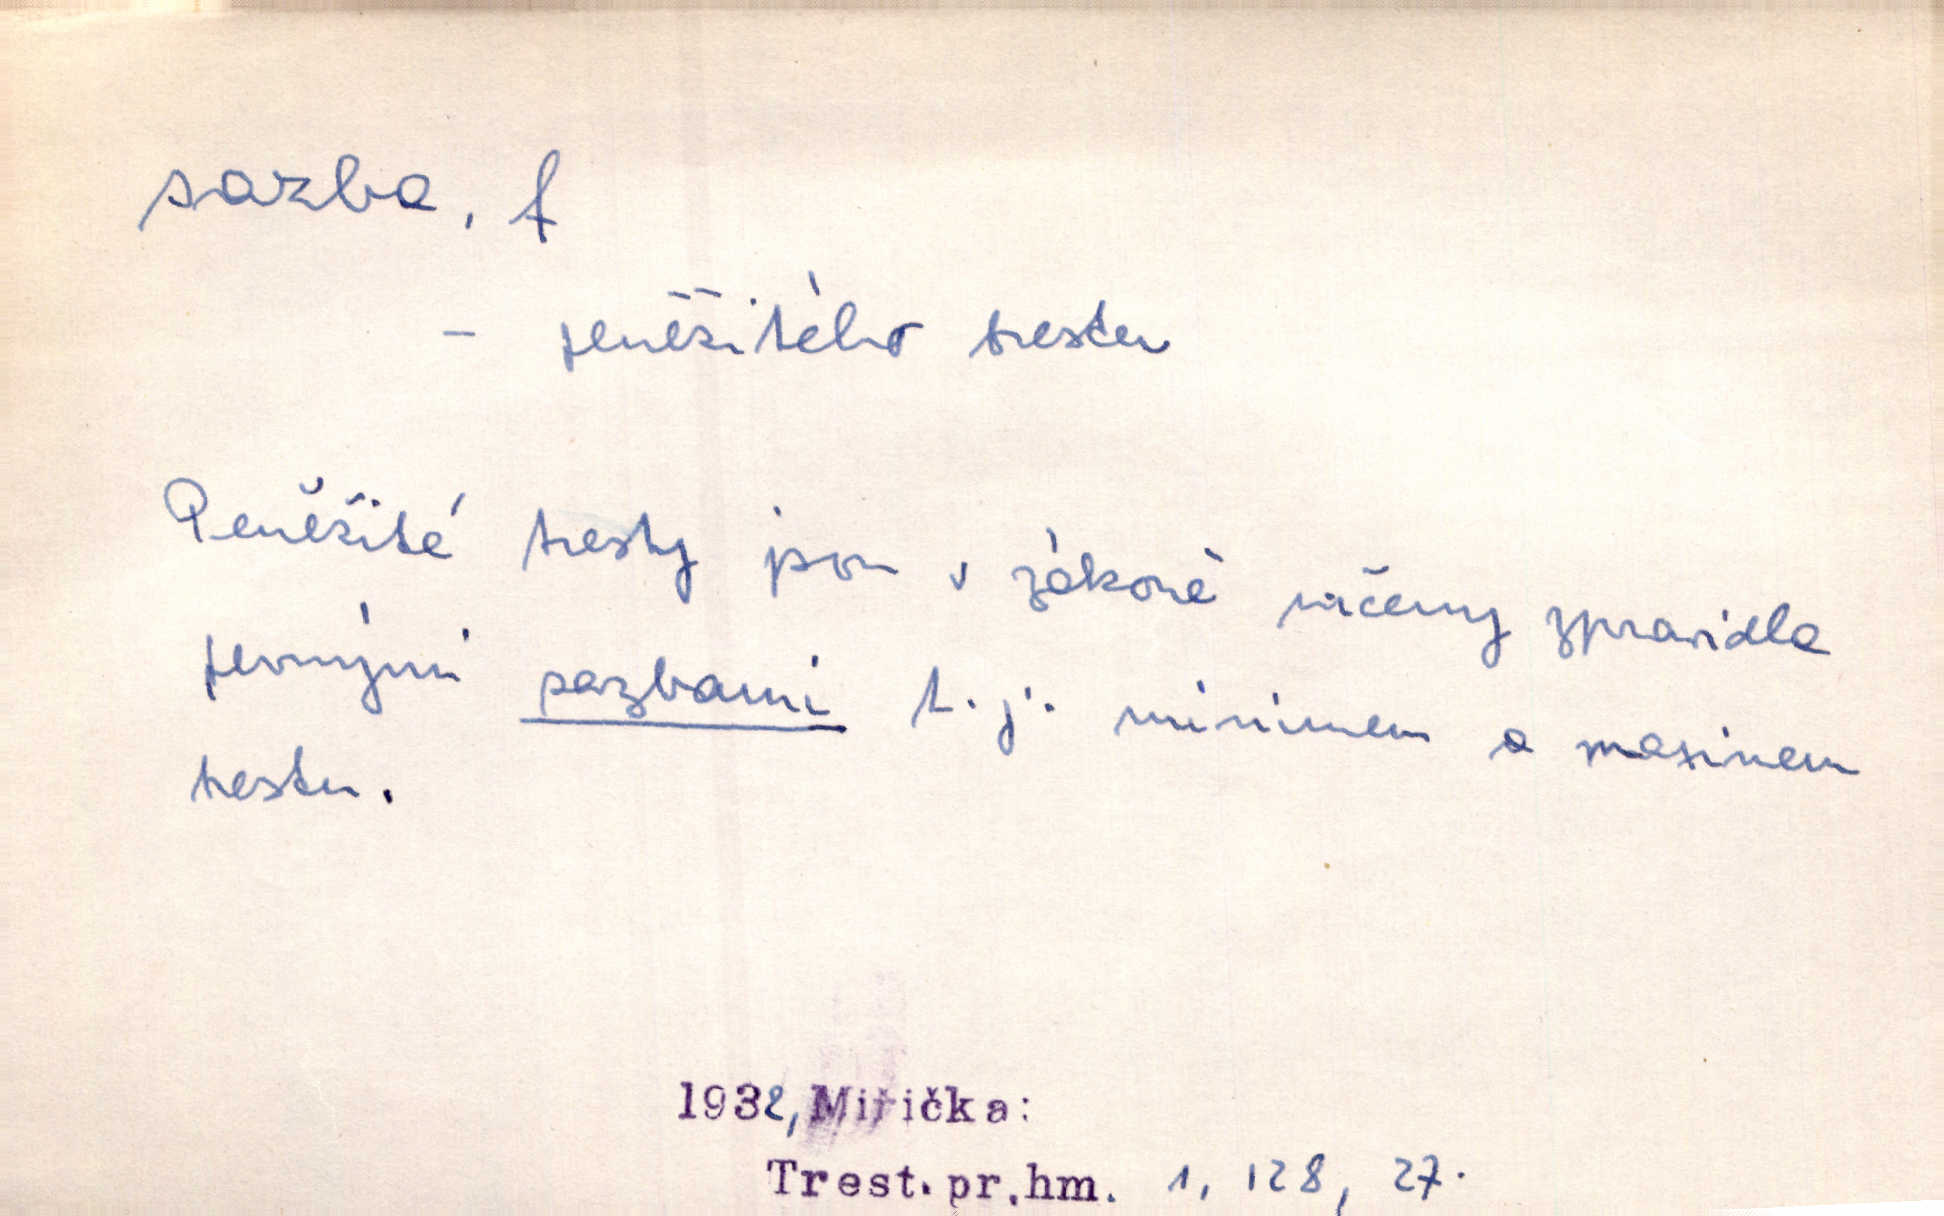 sazba, f
- peněžitého trestu
Peněžité tresty jsou v zákoně určeny zpravidla
pevnými sazbami t.j. minimem a maximem
trestu.
1932, Miřička:
Trest.pr.hm. 1, 128, 27.